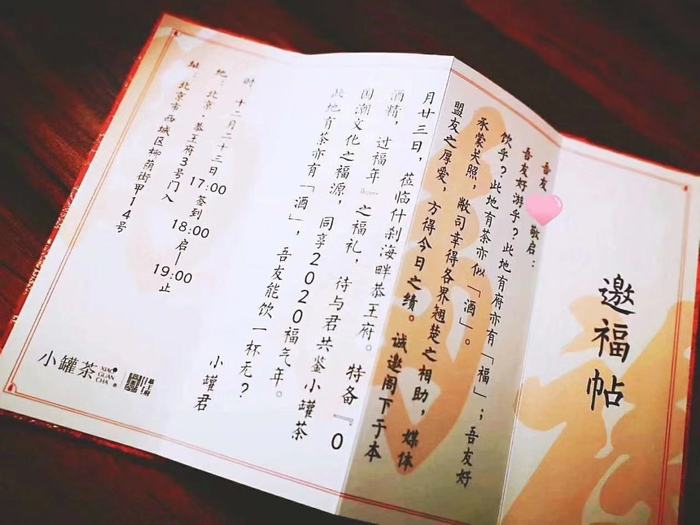 邀福帖
吾友 敬启：
吾友好游乎？此地有府亦有「福」；吾友好
饮乎？此地有茶亦似「酒」。
承蒙关照，敝司幸得各界翘楚之相助，媒体
盟友之厚爱，方得今日之绩。诚邀阁下于本
月廿三日，莅临什刹海畔恭王府。特备『0
酒精，过福年』之福礼，待与君共鉴小罐茶
国潮文化之福源，同享2020福气年。
此地有茶亦有「酒」，吾友能饮一杯无？
小罐君
时：十二月二十三日 17:00签到 18:00启—19:00止
地：北京·恭王府3号门入
址：北京市西城区柳荫街甲14号
小罐茶 XIAO GUAN CHA